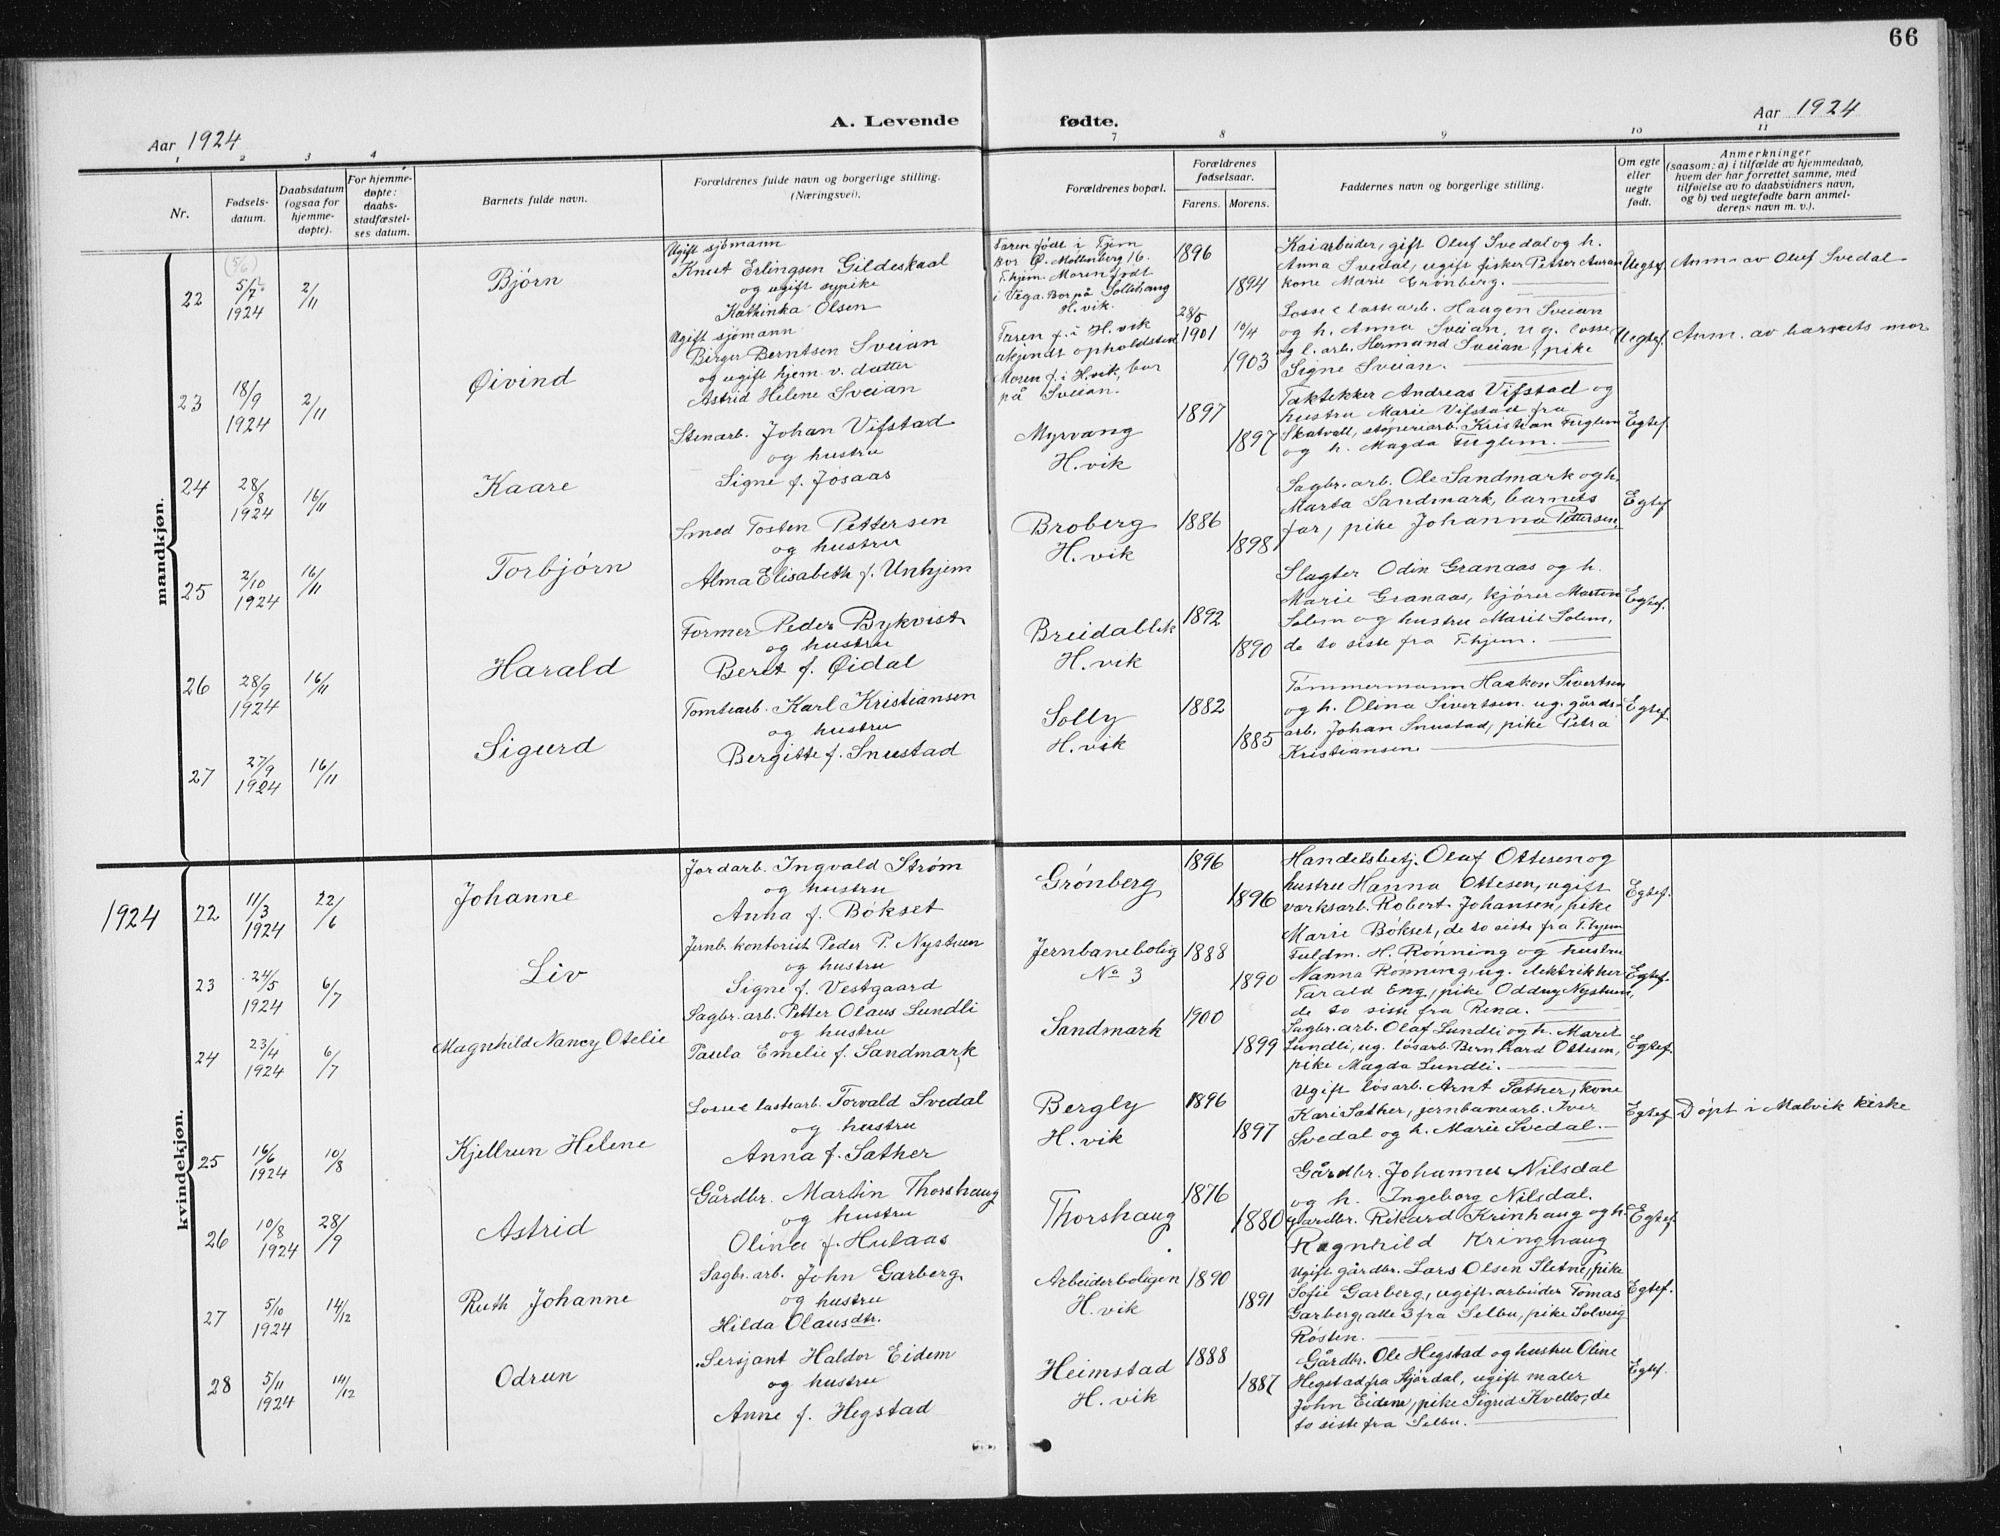 66
Aar 1924
A. Levende fødte.
Aar 1924
1 2 3 4 7 8 9 10 11
Nr.
Fødsels-
datum.
Daabsdatum
(ogsaa for
hjemme-
døpte).
For hjemme-
døpte:
daabs-
stadfæstel-
ses datum.
Barnets fulde navn.
Forældrenes fulde navn og borgerlige stilling.
(Næringsvei).
Forældrenes bopæl.
Forældrenes
fødselsaar.
Farens. Morens.
Faddernes navn og borgerlige stilling.
Om egte
eller
uegte
født.
Anmerkninger
(saasom: a) i tilfælde av hjemmedaab,
hvem der har forrettet samme, med
tilføielse av to daabsvidners navn,
og b) ved uegtefødte barn anmel-
derens navn m. v.).
mandkjøn.
22
(5/6)
5/7
1924
2/11
Bjørn
Ugift sjømann
Knut Erlingsen Gildeskaal
og ugift sypike
Kathinka Olsen
Faren født i Tjem
Bor Ø. Møllenberg 16.
T.hjem. Moren født
i Vega. Bor på Solbhaug
H.vik.
1896
1894
Kaiarbeider, gift Oluf Svedal og h.
Anna Svedal, ugift fisker Petter Auran
kone Marie Grønberg.
Uegtef.
Anm. av Oluf Svedal
23
18/9
1924
2/11
Øivind
Ugift sjømann
Birger Berntsen Sveian
og ugift hjem. v. datter
Astrid Helene Sveian
Faren f. i H.vik
ukjendt opholdsted
Moren f. i H.vik, bor
på Sveian.
28/5
1901
10/4
1903
Losse & lastearb. Haagen Sveian
og h. Anna Sveian, ug. losse
og l. arb. Hermund Sveian, pike
Signe Sveian.
Uegtef.
Anm. av barnets mor
24
28/8
1924
16/11
Kaare
Stenarb. Johan Vifstad
og hustru
Signe f. Josaas
Myrvang
H.vik
1897
1897
Taktekker Andreas Vifstad og
hustru Marie Vifstad fra
Skatvall, støperiarb. Kristian Fuglem
og h. Magda Fuglem.
Egtef.
25
2/10
1924
16/11
Torbjørn
Smed Tosten Pettersen
og hustru
Alma Elisabeth f. Unhjem
Broberg
H.vik
1886
1898
Sagbr. arb. Ole Sandmark og h.
Marta Sandmark, barnets
far, pike Johanna Pettersen.
Egtef
26
28/9
1924
16/11
Harald
Former Peder Bykvist
og hustru
Beret f. Øidal
Breidablik
H.vik
1892
1890
Slagter Odin Granaas og h.
Marie Granaas, kjører Morten
Solem og hustru Marit Solem,
de to siste fra T.hjem.
Egtef.
27
27/9
1924
16/11
Sigurd
Tomtearb. Karl Kristiansen
og hustru
Bergitte f. Snustad
Solly
H.vik
1882
1885
Tømmermann Haakon Sivertsen
og h. Olina Sivertsen. ug. gårds-
arb. Johan Snustad, pike Petra
Kristiansen
Egtef.
1924
kvindekjøn.
22
11/3
1924
22/6
Johanne
Jordarb. Ingvald Strøm
og hustru
Anna f. Bökset
Grønberg
1896
1896
Handelsbetj. Oluf Ottesen og
hustru Hanna Ottesen, ugift
verksarb. Robert Johansen, pike
Marie Bökset, de to siste fra T.hjem
Egtef.
23
24/5
1924
6/7
Liv
Jernb. kontorist Peder P. Nystuen
og hustru
Signe f. Vestgaard
Jernbanebolig
No 3
1888
1890
Fuldm. H. Rønning og hustru
Nanna Rønning, ug. elektrikker
Tarald Eng, pike Oddny Nystuen,
de to siste fra Rena.
Egtef.
24
23/4
1924
6/7
Magnhild Nancy Otelie
Sagbr. arb. Petter Olaus Lundli
og hustru
Paula Emelie f. Sandmark
Sandmark
1900
1899
Sagbr. arb. Olaf Lundli og h. Marit
Lundli, ug. løsarb. Bernhard Ottesen,
pike Magda Lundli.
Egtef.
25
16/6
1924
10/8
Kjellrun Helene
Losse & lastearb. Torvald Svedal
og hustru
Anna f. Sæther
Bergly
H.vik
1896
1897
Ugift løsarb. Arnt Sæther, kone
Kari Sæther, jernbanearb. Iver
Svedal og h. Marie Svedal.
Egtef.
Døpt i Malvik kirke
26
10/8
1924
28/9
Astrid
Gårdbr. Martin Thorshaug
og hustru
Olina f. Hulaas
Thorshaug
1876
1880
Gårdbr. Johannes Nilsdal
og h. Ingeborg Nilsdal.
gårdbr. Rikard Krinhaug og h.
Ragnhild Kringhaug
Egtef.
27
5/10
1924
14/12
Ruth Johanne
Sagbr. arb. John Garberg
og hustru
Hilda Olausdtr.
Arbeiderboligen
H.vik
1890
1891
Ugift gårdbr. Lars Olsen Sletne, pike
Sofie Garberg, ugift arbeider Tomas
Garberg, alle 3 fra Selbu, pike Solveig
Røsten.
Egtef.
28
5/11
1924
14/12
Odrun
Sersjant Haldor Eidem
og hustru
Anne f. Hegstad
Heimstad
H.vik
1888
1887
Gårdbr. Ole Hegstad og hustru Oline
Hegstad fra Stjørdal, ugift maler
John Eidem, pike Sigrid Kvello, de
to siste fra Selbu.
Egtef.